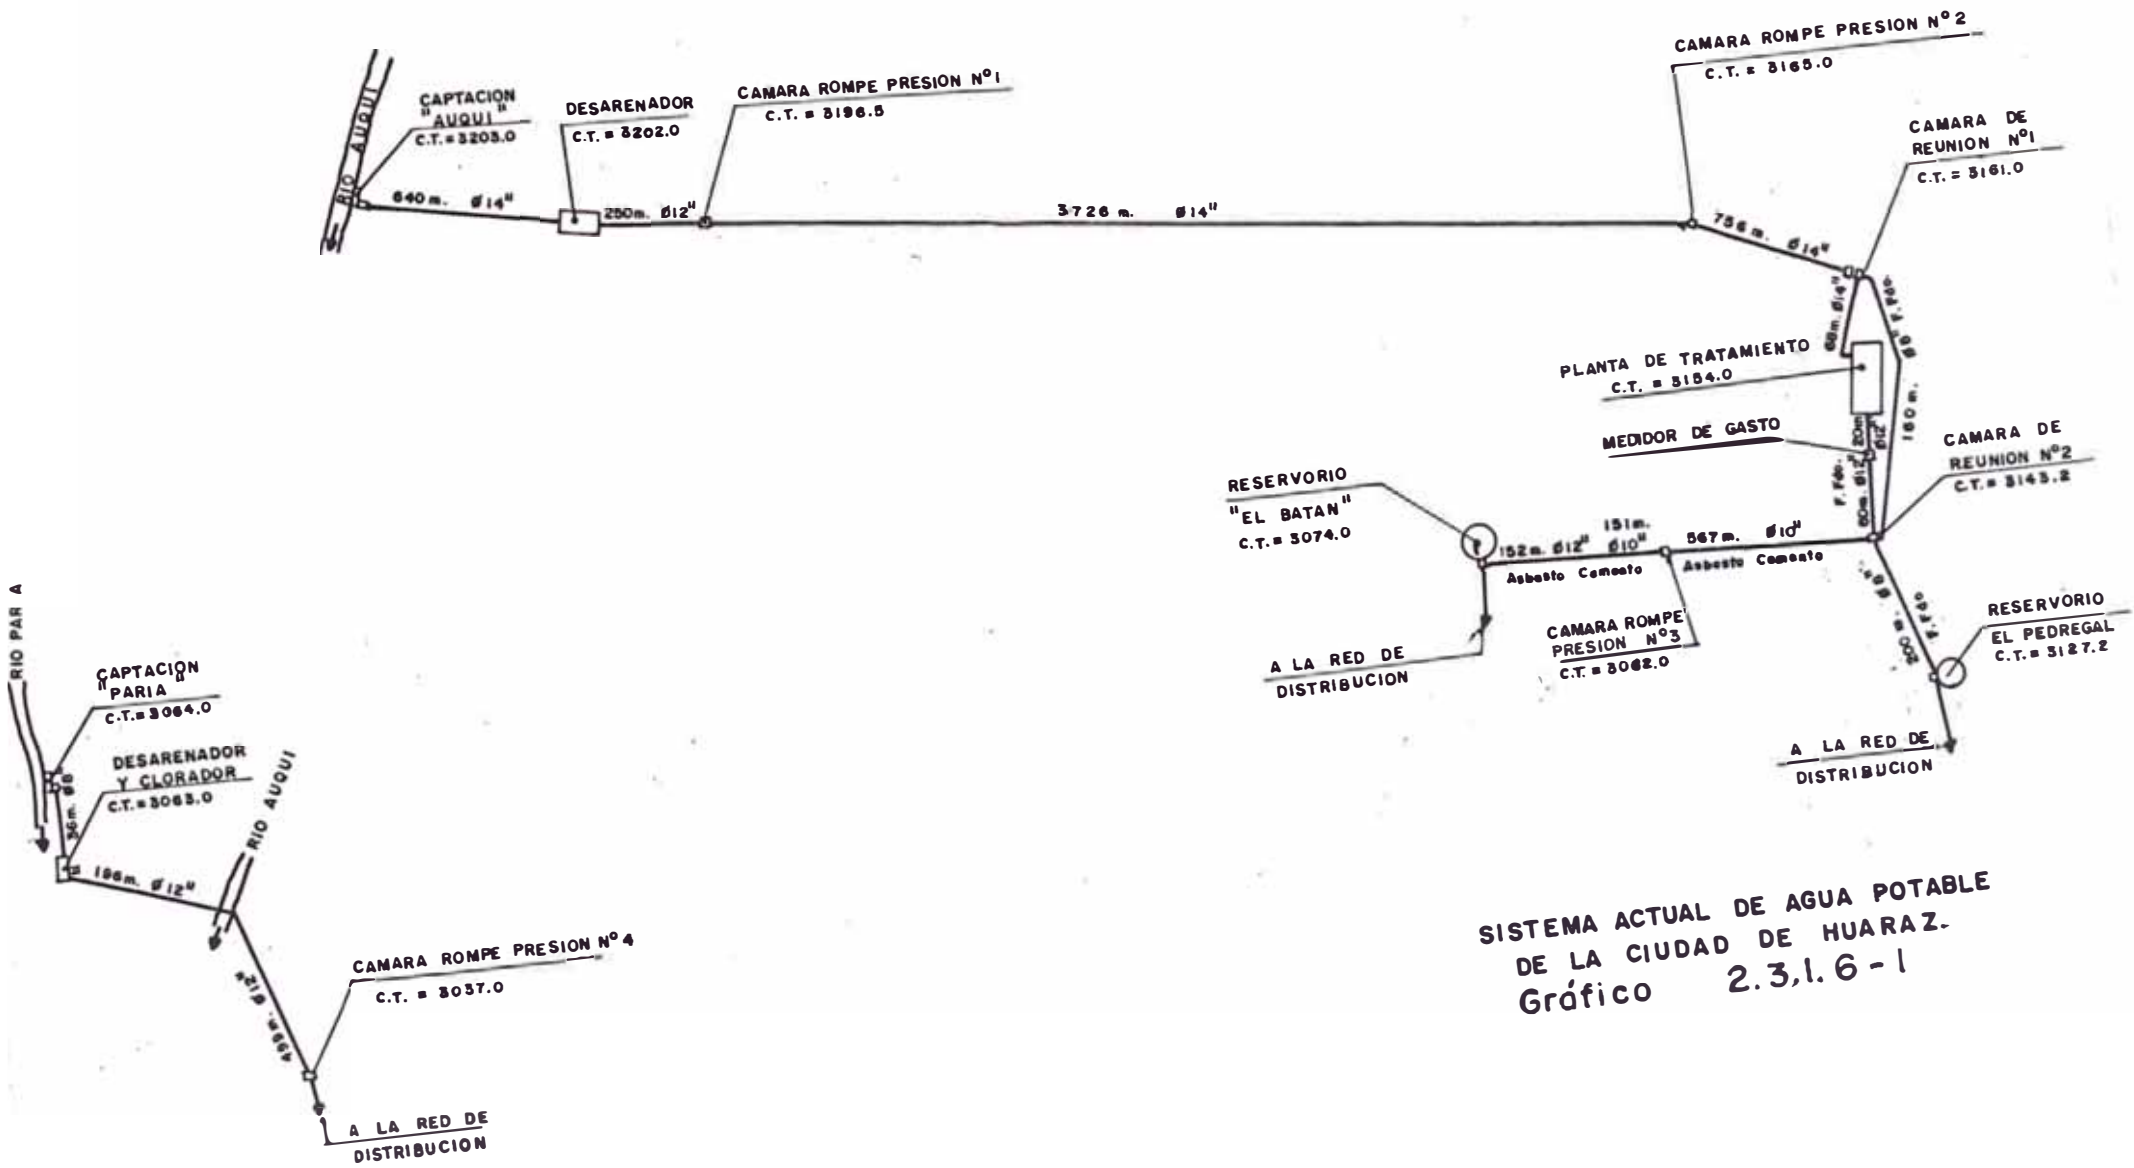 RIO AUQUI
CAPTACION
"AUQUI"
C.T. = 3203.0
DESARENADOR
C.T. = 3202.0
CAMARA ROMPE PRESION Nº1
C.T. = 3196.5
CAMARA ROMPE PRESION Nº2
C.T. = 3165.0
CAMARA DE
REUNION Nº1
C.T. = 3161.0
640 m. Ø14"
250m. Ø12"
3726 m. Ø14"
756 m. Ø14"
68m. Ø14"
Ø8" F.Fdo.
160 m.
PLANTA DE TRATAMIENTO
C.T. = 3154.0
MEDIDOR DE GASTO
20m
Ø12"
F.Fdo.
60m. Ø12"
CAMARA DE
REUNION Nº2
C.T. = 3143.2
RESERVORIO
"EL BATAN"
C.T. = 3074.0
152m. Ø12"
151m.
Ø10"
Asbesto Cemento
567m. Ø10"
Asbesto Cemento
CAMARA ROMPE
PRESION Nº3
C.T. = 3082.0
A LA RED DE
DISTRIBUCION
200 m. Ø8"
F.Fdo
RESERVORIO
EL PEDREGAL
C.T. = 3127.2
A LA RED DE
DISTRIBUCION
RIO PAR A
CAPTACION
"PARIA"
C.T. = 3064.0
DESARENADOR
Y CLORADOR
C.T. = 3063.0
36m. Ø8"
RIO AUQUI
196m. Ø12"
499m. Ø12"
CAMARA ROMPE PRESION Nº4
C.T. = 3037.0
A LA RED DE
DISTRIBUCION
SISTEMA ACTUAL DE AGUA POTABLE
DE LA CIUDAD DE HUARAZ.
Gráfico 2.3.1.6-1